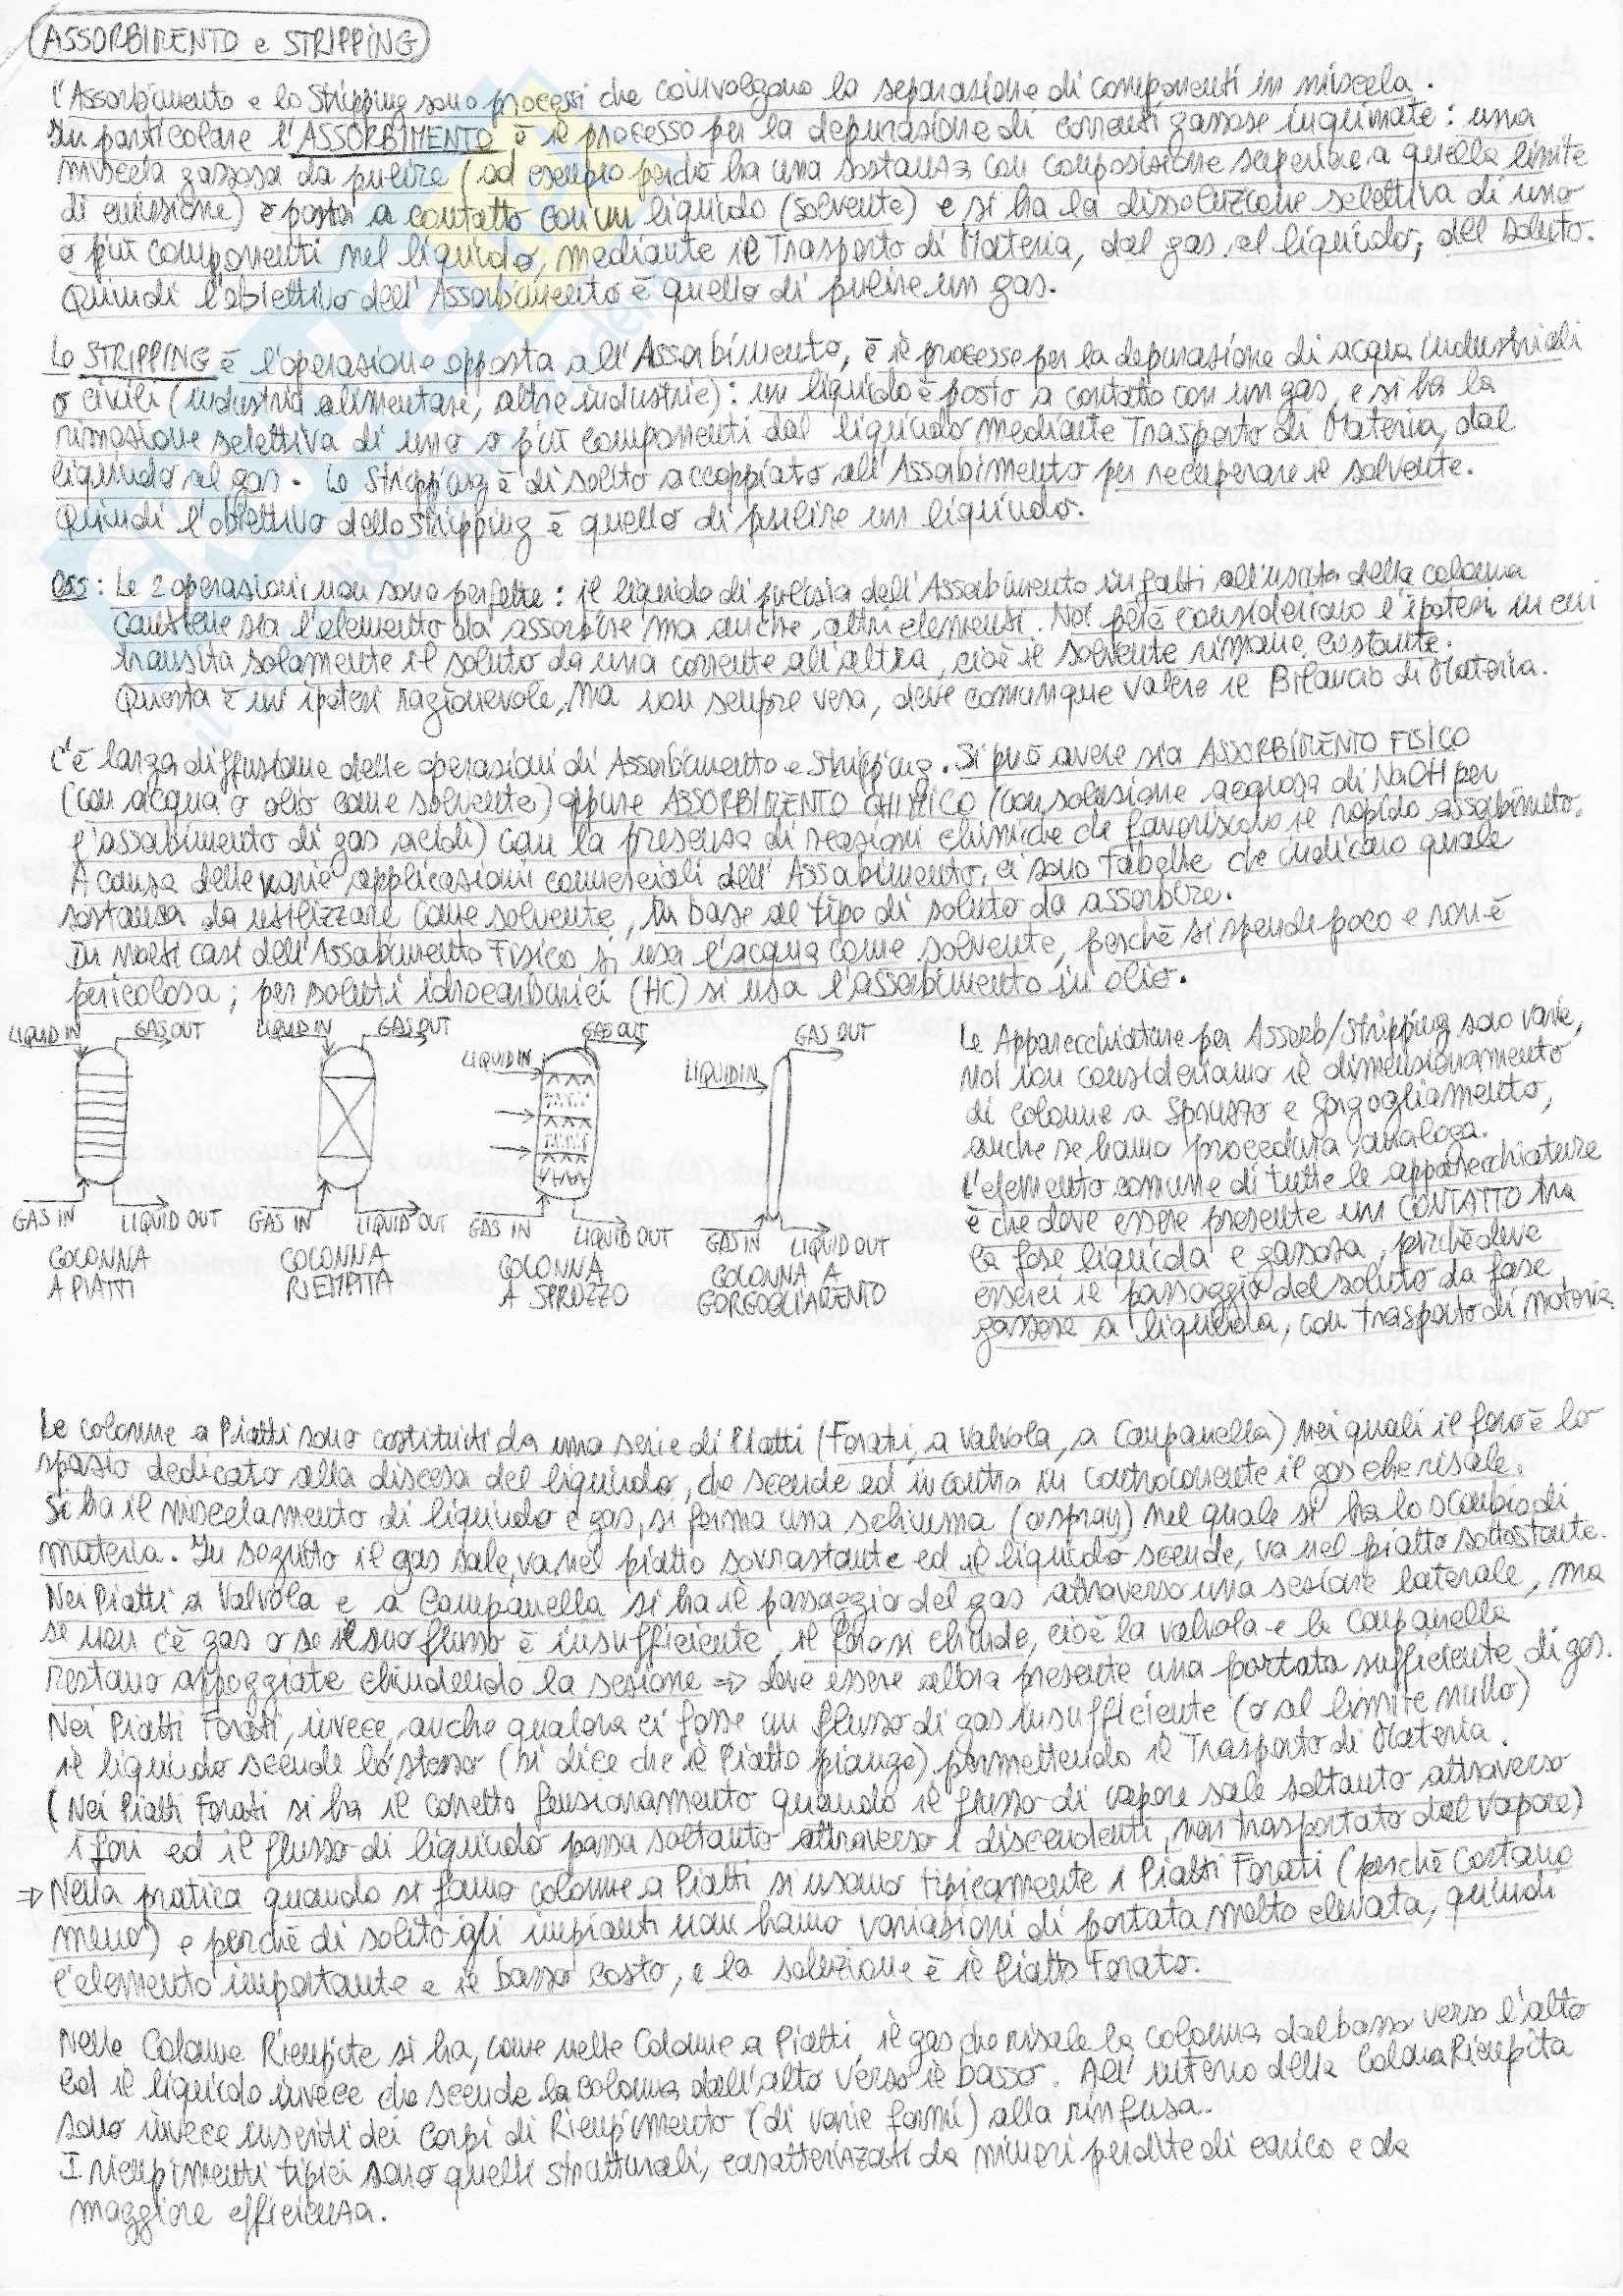 ASSORBIMENTO e STRIPPING
L'Assorbimento e lo Stripping sono processi che coinvolgono la separazione di componenti in miscela.
In particolare l'ASSORBIMENTO è il processo per la depurazione di correnti gassose inquinate: una
miscela gassosa da pulire (ad esempio perché ha una sostanza con composizione superiore a quella limite
di emissione) è posta a contatto con un liquido (solvente) e si ha la dissoluzione selettiva di uno
o più componenti nel liquido, mediante il Trasporto di Materia, dal gas al liquido, del soluto.
Quindi l'obiettivo dell'Assorbimento è quello di pulire un gas.
Lo STRIPPING è l'operazione opposta all'Assorbimento, è il processo per la depurazione di acqua industriali
o civili (industria alimentare, altre industrie): un liquido è posto a contatto con un gas, e si ha la
rimozione selettiva di uno o più componenti dal liquido mediante Trasporto di Materia, dal
liquido al gas. Lo Stripping è di solito accoppiato all'Assorbimento per recuperare il solvente.
Quindi l'obiettivo dello Stripping è quello di pulire un liquido.
OSS: Le 2 operazioni non sono perfette: il liquido di pulizia dell'Assorbimento infatti all'uscita della colonna
contiene sia l'elemento da assorbire ma anche altri elementi. Noi però consideriamo l'ipotesi in cui
transita solamente il soluto da una corrente all'altra, cioè il solvente rimane costante.
Questa è un'ipotesi ragionevole, ma non sempre vera, deve comunque valere il Bilancio di Materia.
C'è larga diffusione delle operazioni di Assorbimento e Stripping. Si può avere sia ASSORBIMENTO FISICO
(con acqua o olio come solvente) oppure ASSORBIMENTO CHIMICO (con soluzione acquosa di NaOH per
l'assorbimento di gas acidi) con la presenza di reazioni chimiche che favoriscono il rapido assorbimento.
A causa delle varie applicazioni commerciali dell'Assorbimento, ci sono tabelle che indicano quale
sostanza da utilizzare come solvente, in base al tipo di soluto da assorbire.
In molti casi dell'Assorbimento Fisico si usa l'acqua come solvente, perché si spende poco e non è
pericolosa; per soluti idrocarburici (HC) si usa l'assorbimento in olio.
LIQUID IN GAS OUT LIQUID IN GAS OUT LIQUID IN GAS OUT LIQUID IN GAS OUT
GAS IN LIQUID OUT GAS IN LIQUID OUT GAS IN LIQUID OUT GAS IN LIQUID OUT
COLONNA
A PIATTI
COLONNA
RIEMPITA
COLONNA
A SPRUZZO
COLONNA A
GORGOGLIAMENTO
Le Apparecchiature per Assorb/Stripping sono varie,
noi non consideriamo il dimensionamento
di colonne a Spruzzo e Gorgogliamento,
anche se hanno procedura analoga.
L'elemento comune di tutte le apparecchiature
è che deve essere presente un CONTATTO tra
la fase liquida e gassosa, perché deve
esserci il passaggio del soluto da fase
gassosa a liquida, con trasporto di materia
Le colonne a Piatti sono costituiti da una serie di Piatti (Forati, a Valvola, a Campanella) nei quali il foro è lo
spazio dedicato alla discesa del liquido, che scende ed incontra in controcorrente il gas che risale.
Si ha il miscelamento di liquido e gas, si forma una schiuma (o spray) nel quale si ha lo scambio di
materia. In seguito il gas sale, va nel piatto sovrastante ed il liquido scende, va nel piatto sottostante.
Nei Piatti a Valvola e a Campanella si ha il passaggio del gas attraverso una sezione laterale, ma
se non c'è gas o se il suo flusso è insufficiente, il foro si chiude, cioè la valvola e la campanella
restano appoggiate chiudendo la sezione ⇒ deve essere allora presente una portata sufficiente di gas.
Nei Piatti Forati, invece, anche qualora ci fosse un flusso di gas insufficiente (o al limite nullo)
il liquido scende lo stesso (si dice che il Piatto piange) permettendo il Trasporto di Materia.
(Nei Piatti Forati si ha il corretto funzionamento quando il flusso di vapore sale soltanto attraverso
i fori ed il flusso di liquido passa soltanto attraverso i discendenti, non trasportato dal vapore)
⇒ Nella pratica quando si fanno colonne a Piatti si usano tipicamente i Piatti Forati (perché costano
meno) e perché di solito gli impianti non hanno variazioni di portata molto elevata, quindi
l'elemento importante è il basso costo, e la soluzione è il Piatto Forato.
Nelle Colonne Riempite si ha, come nelle Colonne a Piatti, il gas che risale la colonna dal basso verso l'alto
ed il liquido invece che scende la colonna dall'alto verso il basso. All'interno della Colonna Riempita
sono invece inseriti dei Corpi di Riempimento (di varie forme) alla rinfusa.
I riempimenti tipici sono quelli strutturali, caratterizzati da minori perdite di carico e da
maggiore efficienza.